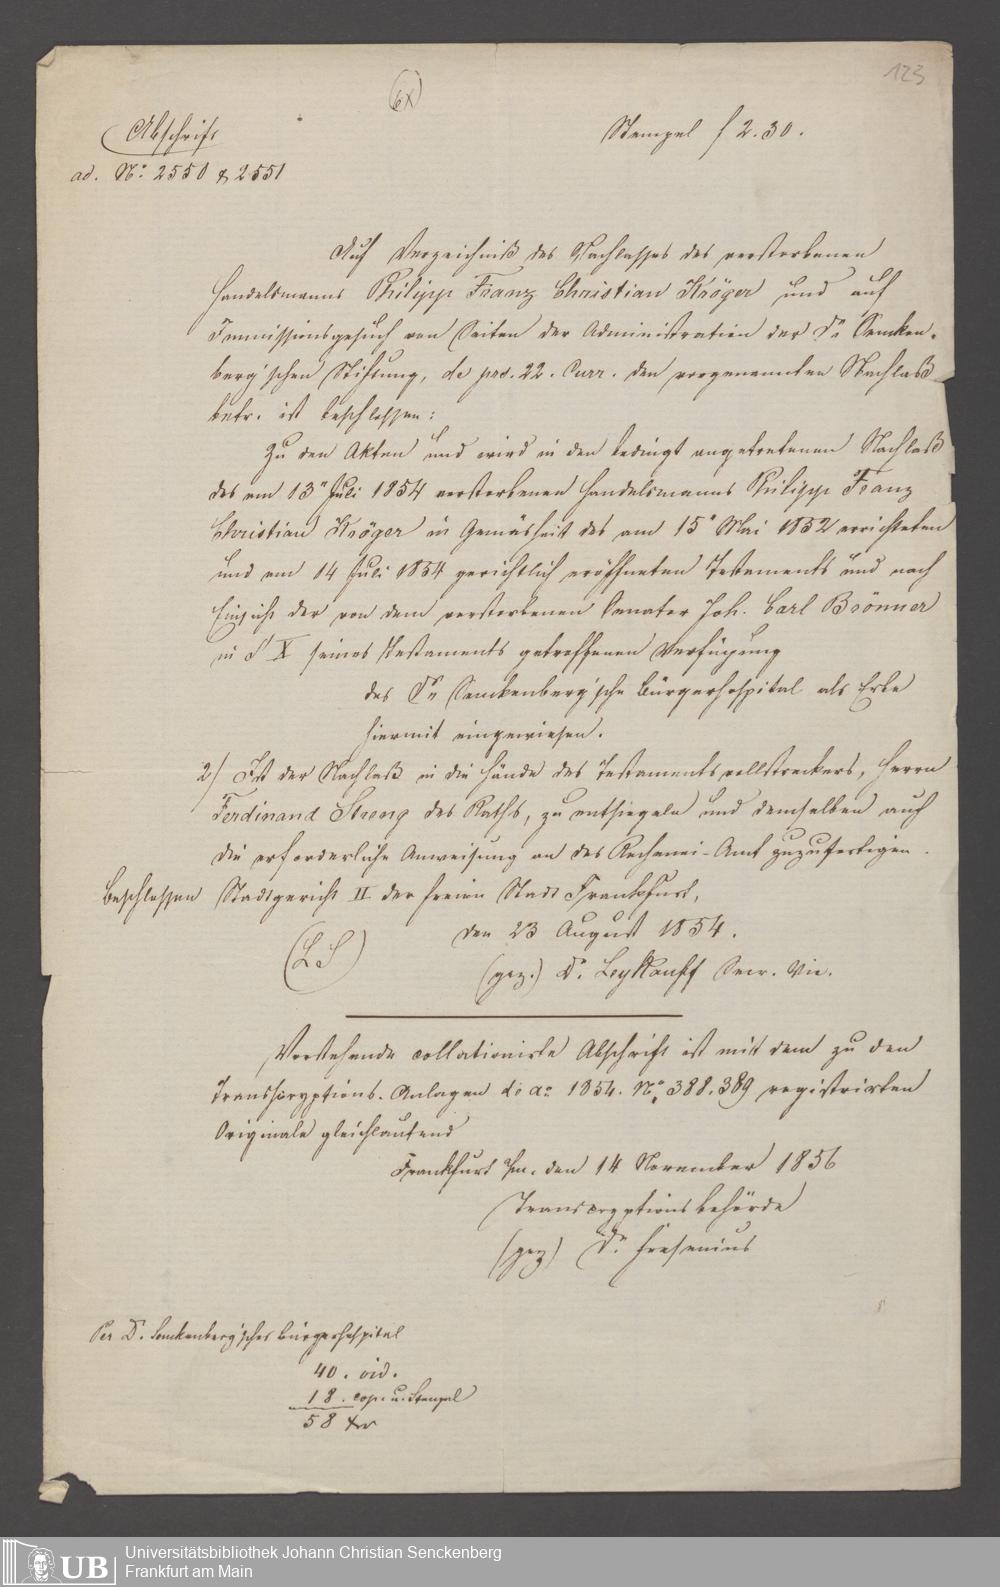 123
(6x)
Abschrift
Stempel f 2.30.
ad. No: 2550 & 2551
Auf Verzeichniß des Nachlasses des verstorbenen
Handelsmanns Philipp Franz Christian Kröger und auf
Immissionsgesuch von Seiten der Administration der Dr. Sencken-
berg'schen Stiftung, de prs. 22. Curr. den vorgenannten Nachlaß
betr. ist beschlossen:
Zu den Akten und wird in den bedingt angetretenen Nachlaß
des am 13n Juli 1854 verstorbenen Handelsmanns Philipp Franz
Christian Kröger in Gemäsheit des am 15n Mai 1852 errichteten
und am 14 Juli 1854 gerichtlich eröffneten Testaments und nach
Einsicht der von dem verstorbenen Senator Joh. Carl Brönner
in § X seines Testaments getroffenen Verfügung
das Dr. Senckenberg'sche Bürgerhospital als Erbe
hiermit eingewiesen.
2/ Ist der Nachlaß in die Hände des Testamentsvollstreckers, Herrn
Ferdinand Streng des Raths, zu entsiegeln und demselben auch
die erforderliche Anweisung an das Rechenei-Amt zuzufertigen.
Beschlossen Stadtgericht II der freien Stadt Frankfurt,
den 23 August 1854.
(LS)
(gez.) Dr. Leykauff Secr. Vic.
Vorstehende collationirte Abschrift ist mit dem zu den
Transscryptions-Anlagen de ao 1854. No. 388.389 registrirten
Originale gleichlautend
Frankfurt a/m. den 14 November 1856
Transcryptionsbehörde
(gez) Dr. Fresenius
Per D. Senckenberg'sches Bürgerhospital
40. vid.
18. cop. u. Stempel
58 xr
UB Universitätsbibliothek Johann Christian Senckenberg
Frankfurt am Main